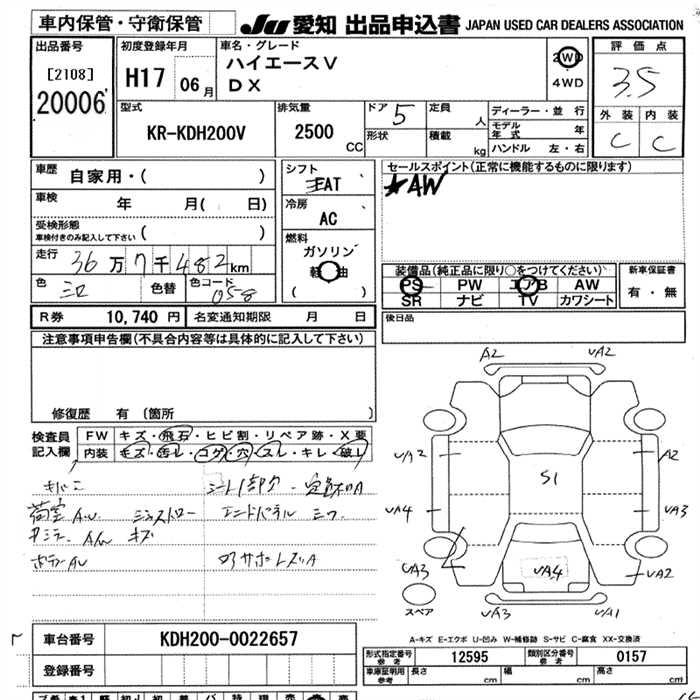 車内保管・守衛保管
JU 愛知 出品申込書 JAPAN USED CAR DEALERS ASSOCIATION
出品番号
[2108]
20006
初度登録年月
H17 06月
車名・グレード
ハイエースV
DX
2WD
4WD
評価点
3.5
外装 内装
C C
型式
KR-KDH200V
排気量
2500 CC
ドア 5
形状
定員 人
積載 kg
ディーラー・並行
モデル年式 年
ハンドル 左・右
車歴
自家用・( )
車検 年 月( 日)
受検形態
車検付きのみ記入して下さい ( )
走行 36万7千482km
色
色替
色コード 058
シフト
FAT
冷房
AC
燃料
ガソリン
軽油
( )
セールスポイント(正常に機能するものに限ります)
★AW
装備品(純正品に限り○をつけてください)
PS PW エアB AW
SR ナビ TV カワシート
新車保証書
有・無
R券 10,740円 名変通知期限 月 日
後日品
注意事項申告欄(不具合内容等は具体的に記入して下さい)
修復歴 有(箇所 )
検査員記入欄
FW キズ・飛石・ヒビ割・リペア跡・X要
内装 キズ・汚レ・コゲ・穴・スレ・キレ・破レ
荷室 AU
キズ
A2 UA2
UA2 A2
S1
UA4 UA3
UA3 UA4 UA2
スペア
UA3 UA1
A-キズ E-エクボ U-凹み W-補修跡 S-サビ C-腐食 XX-交換済
車台番号 KDH200-0022657
登録番号
形式指定番号 参考 12595 類別区分番号 参考 0157
車庫証明用 参考 長さ cm 幅 cm 高さ cm